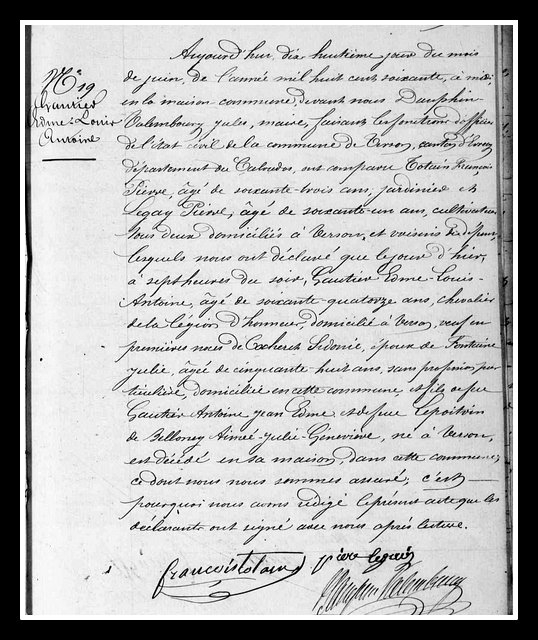 N° 19
Gautier
Edme-Louis
Antoine
Aujourd'hui dix huitième jour du mois
de juin, de l'année mil huit cent soixante, à midi,
en la maison commune, devant nous Dauphin
Palembourg Jules, maire, faisant les fonctions d'officier
de l'état civil de la commune de Verson, canton d'Evrecy
département du Calvados, ont comparu Totain François
Pierre, âgé de soixante-trois ans, jardinier et
Legay Pierre, âgé de soixante-un ans, cultivateur
tous deux domiciliés à Verson, et voisins du défunt,
lesquels nous ont déclaré que le jour d'hier,
à sept heures du soir, Gautier Edme-Louis-
Antoine, âgé de soixante-quatorze ans, chevalier
de la Légion d'honneur, domicilié à Verson, veuf en
premières noces de Cacheret Sidonie, époux de Fontaine
Julie, âgée de cinquante-huit ans, sans profession par
ticulière, domiciliée en cette commune, et fils de feu
Gautier Antoine Jean Edme et de feue Lepoitvin
de Belloney Aimée-Julie-Geneviève, né à Verson,
est décédé en sa maison, dans cette commune,
ce dont nous nous sommes assuré; c'est
pourquoi nous avons rédigé le présent acte que les
déclarants ont signé avec nous après lecture.
françois totain pierre legai